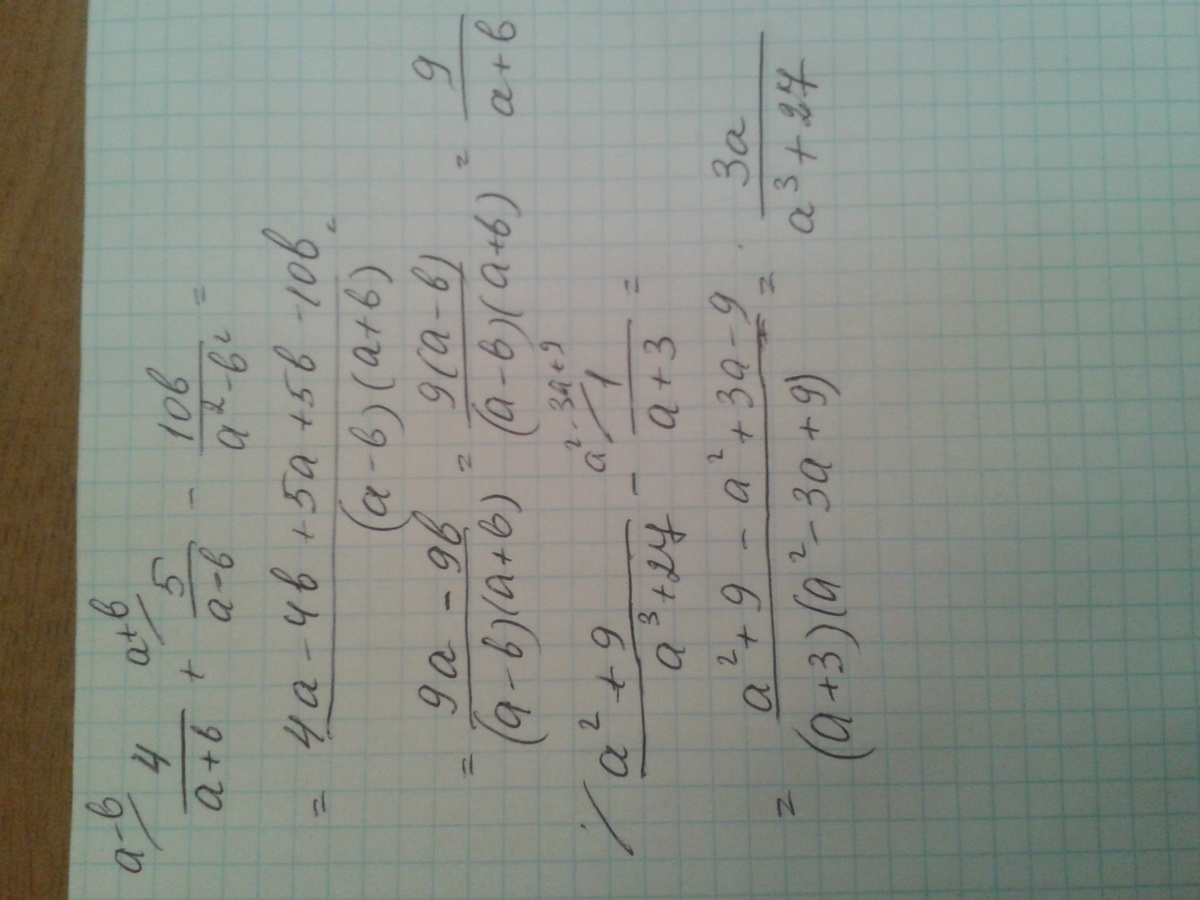 a-b/ 4/(a+b) + a+b/ 5/(a-b) - 10b/(a²-b²) =
= (4a-4b+5a+5b-10b)/((a-b)(a+b)) =
= (9a-9b)/((a-b)(a+b)) = 9(a-b)/((a-b)(a+b)) = 9/(a+b)
/ (a²+9)/(a³+27) - a²-3a+9/ 1/(a+3) =
= (a²+9-a²+3a-9)/((a+3)(a²-3a+9)) = 3a/(a³+27)